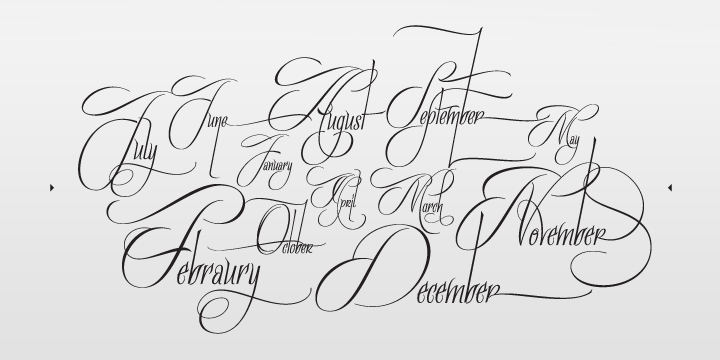 July
June
August
September
May
January
April
March
November
Febraury
October
December